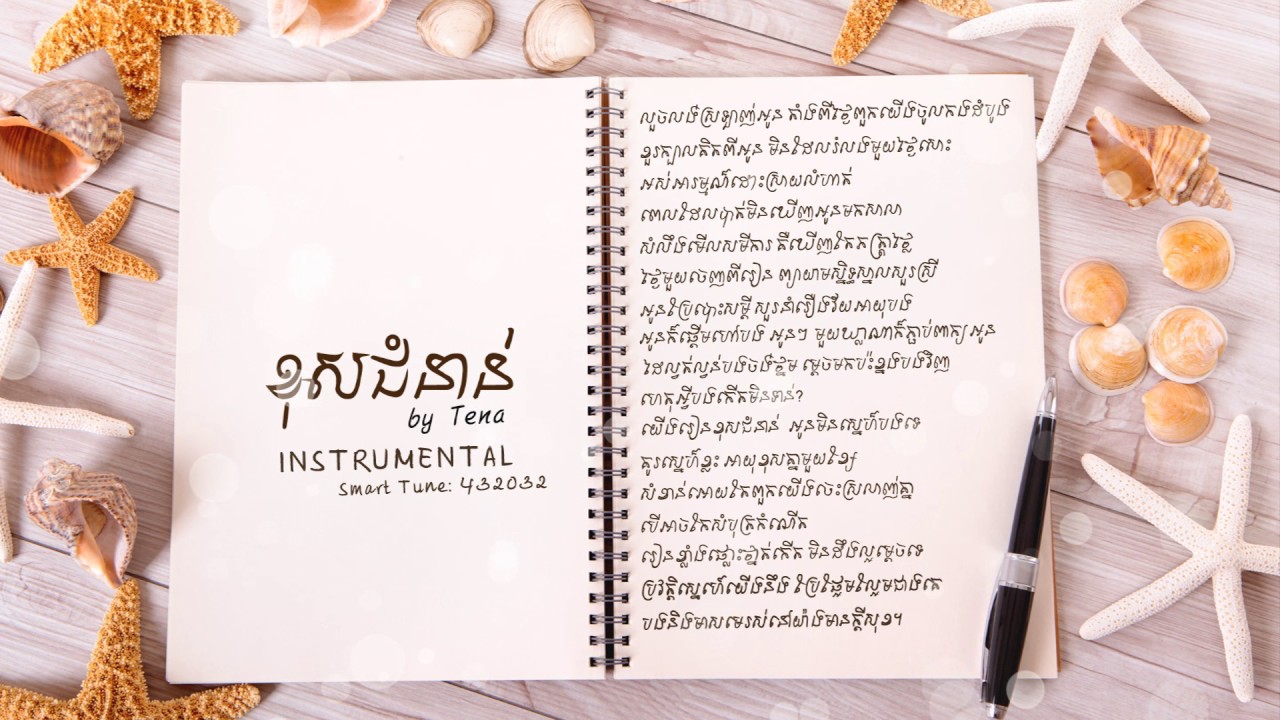 ខុសជំនាន់
by Tena
INSTRUMENTAL
Smart Tune: 432032
លួចលង់ស្រឡាញ់អូន តាំងពីថ្ងៃពួកយើងចូលកង់ដំបូង
ខួរក្បាលគិតពីអូន មិនដែលរំលងមួយថ្ងៃសោះ
អស់អារម្មណ៍ដោះស្រាយលំហាត់
ពេលដែលបាត់មិនឃើញអូនមកសាលា
សំលឹងមើលសមីការ គឺឃើញតែកត្រ្តាថ្លៃ
ថ្ងៃមួយចេញពីរៀន ព្យាយាមស្និទ្ធស្នាលសួរស្រី
អូនប្រែឈ្មោះសម្ដី សួរនាំរឿងវ័យអាយុបង
អូនក៏ផ្ដើមហៅបង អូនៗ មួយឃ្លាណាក៏ភ្ជាប់ពាក្យ អូន
ដៃល្វត់ល្វន់បងចង់ថ្នម ម្ដេចមកប៉ះខ្នងបងវិញ
ហេតុអ្វីបងកើតមិនទាន់?
យើងរៀនខុសជំនាន់ អូនមិនស្នេហ៍បងទេ
គូរស្នេហ៍ខ្លះ អាយុខុសគ្នាមួយខែ្ស
សំខាន់អោយតែពួកយើងចេះស្រលាញ់គ្នា
បើអាចកែសំបុត្រកំណើត
រៀនខ្លាំងផ្លោះថ្នាក់កើត មិនដឹងល្អម្ដេចទេ
ប្រវត្តិស្នេហ៍យើងនឹង ប្រែផ្អែមល្ហែមជាងគេ
បងនិងមាសមេរស់នៅយ៉ាងមានក្ដីសុខ។